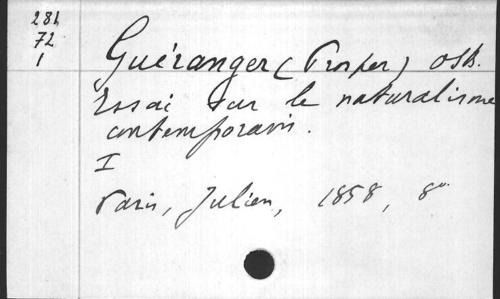 281
72
1
Guéranger (Prosper) OSB.
Essai sur le naturalisme
contemporain.
I
Paris, Julien, 1858, 8°